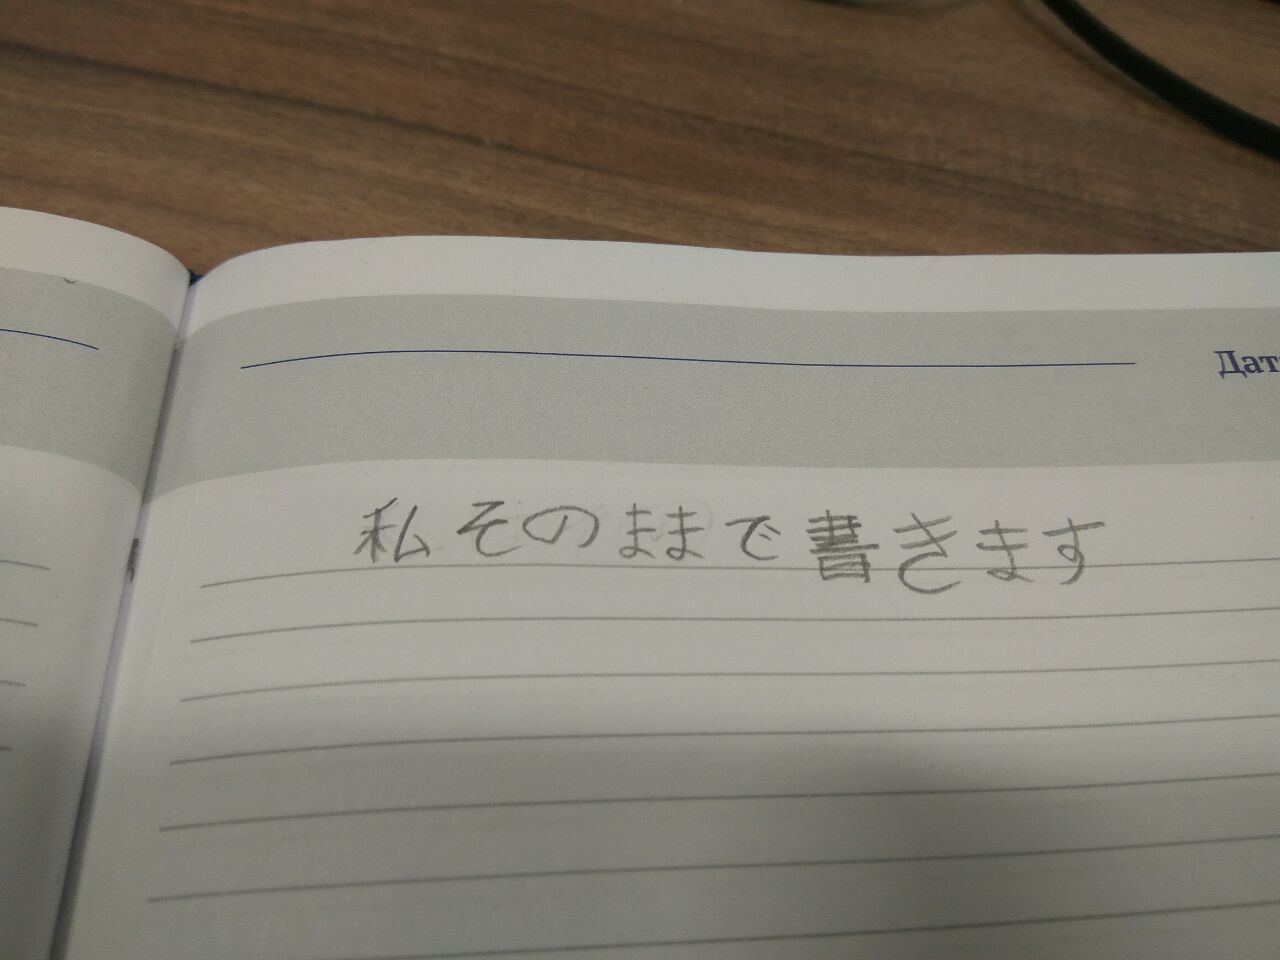 Дат
私そのままで書きます